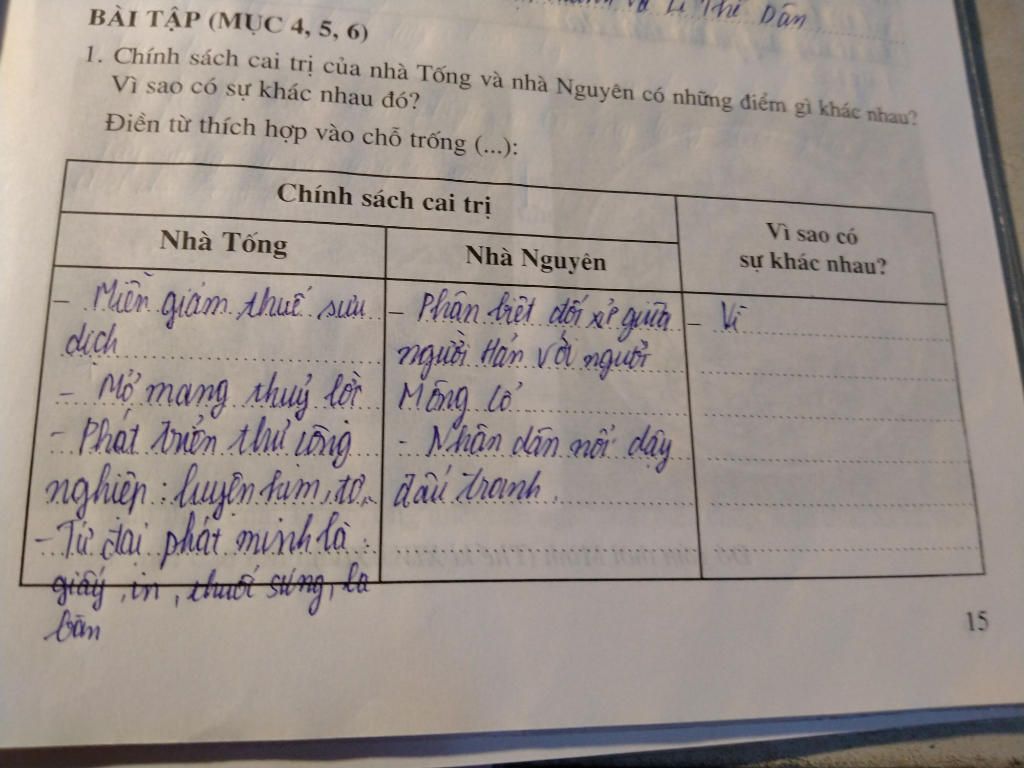 Lí Thế Dân
BÀI TẬP (MỤC 4, 5, 6)
1. Chính sách cai trị của nhà Tống và nhà Nguyên có những điểm gì khác nhau?
Vì sao có sự khác nhau đó?
Điền từ thích hợp vào chỗ trống (...):
Chính sách cai trị
Vì sao có
sự khác nhau?
Nhà Tống
Nhà Nguyên
- Miễn giảm thuế sưu
dịch
- Mở mang thuỷ lợi
- Phát triển thủ công
nghiệp: luyện tam, tơ..
- Tứ đại phát minh là:
giấy, in, thuốc súng, la
bàn
- Phân biệt đối xử giữa
người Hán với người
Mông Cổ
- Nhân dân nổi dậy
đấu tranh.
- Vì
15